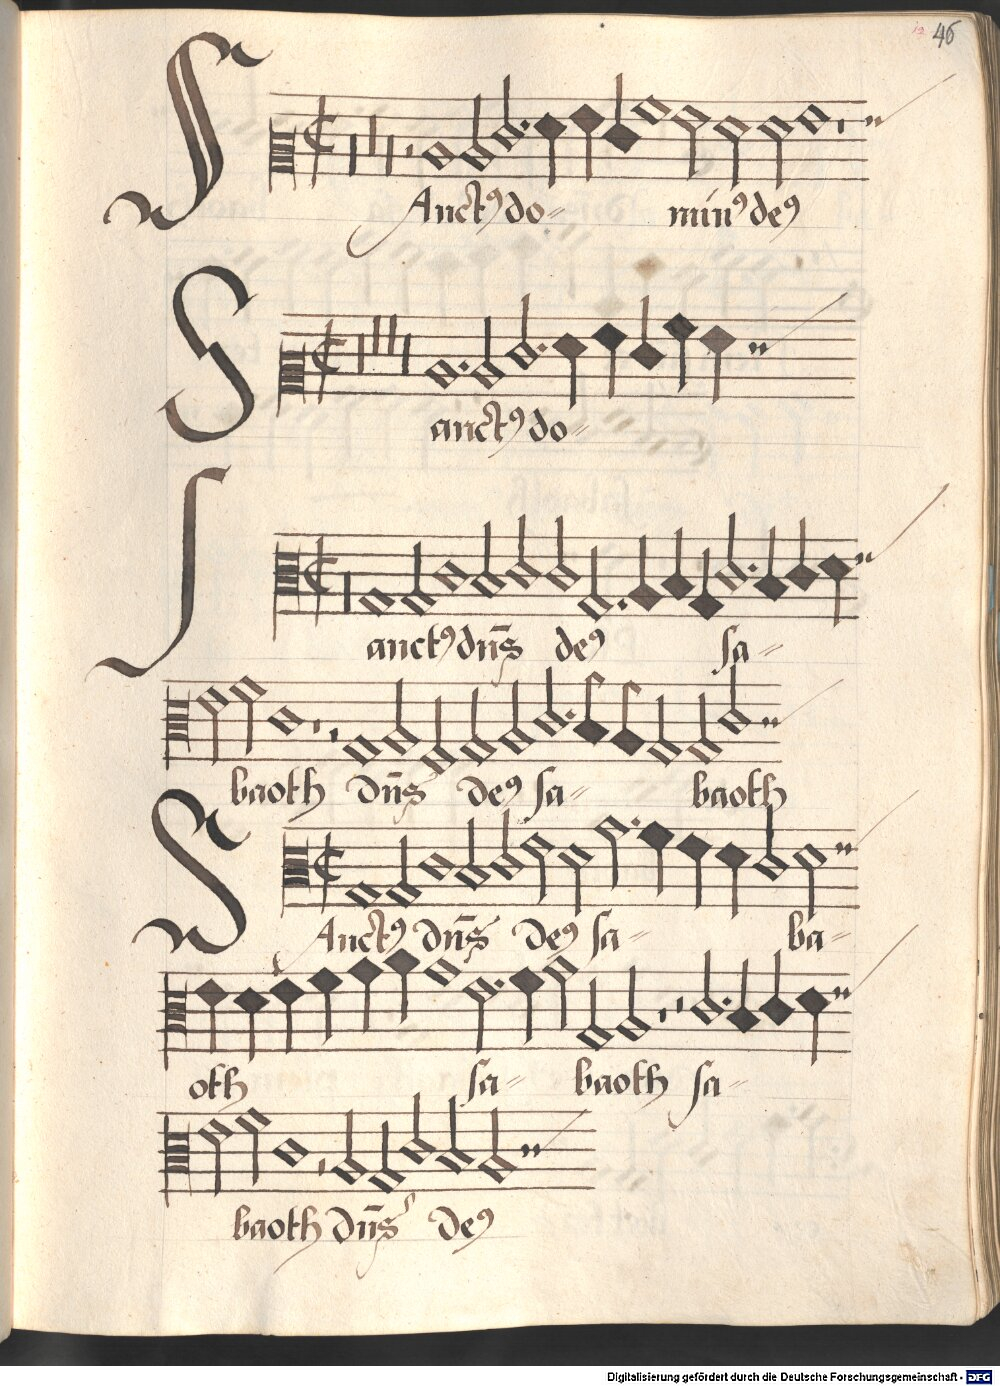 12 46
SAnctꝰ do= minꝰ deꝰ
Sanctꝰ do=
Sanctꝰ dn̄s deꝰ sa=
baoth dn̄s deꝰ sa= baoth
SAnctꝰ dn̄s deꝰ sa= ba=
oth sa= baoth sa=
baoth dn̄s deꝰ
Digitalisierung gefördert durch die Deutsche Forschungsgemeinschaft - DFG